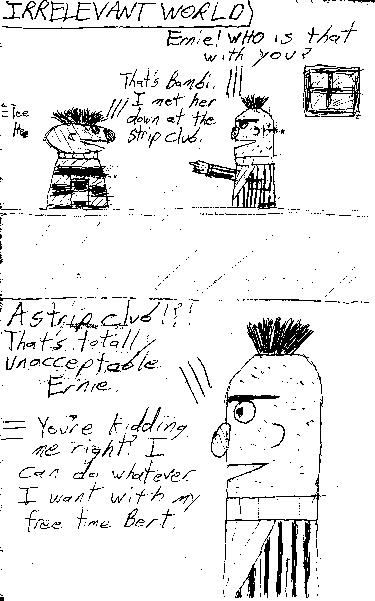 IRRELEVANT WORLD
Ernie! WHO is that
with you?
That's Bambi.
I met her
down at the
strip club.
Tee
Hee
A strip club!?!
That's totally
unacceptable
Ernie.
You're kidding
me right? I
can do whatever
I want with my
free time Bert.